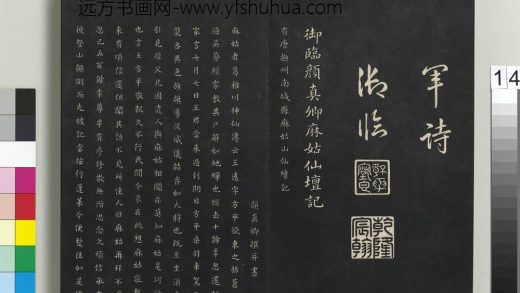 远方书画网-www.yfshuhua.com
14
軍詩
御臨
乾隆宸翰
御臨顏真卿麻姑仙壇記
有唐撫州南城縣麻姑山仙壇記
顏真卿撰并書
麻姑者葛稚川神仙傳云王遠字方平欲東之括蒼
過吳蔡經家教其尸解如地蟬也經去十餘年忽還
家言七月七日王君當來過到期日方平乘羽車駕
龍各異色旌旗導從威儀赫弈如大將也既至坐須
引見經父兄因遣人與麻姑相聞亦莫知麻姑是何
也言王方平敬報久不行民間今來在此想麻姑能
來有頃信還但聞其語不見所使人曰麻姑再拜不
忽已五百餘年尊卑有序修敬無階思念久煩信承
彼登山顛倒而先被記當按行蓬萊今便暫往如是